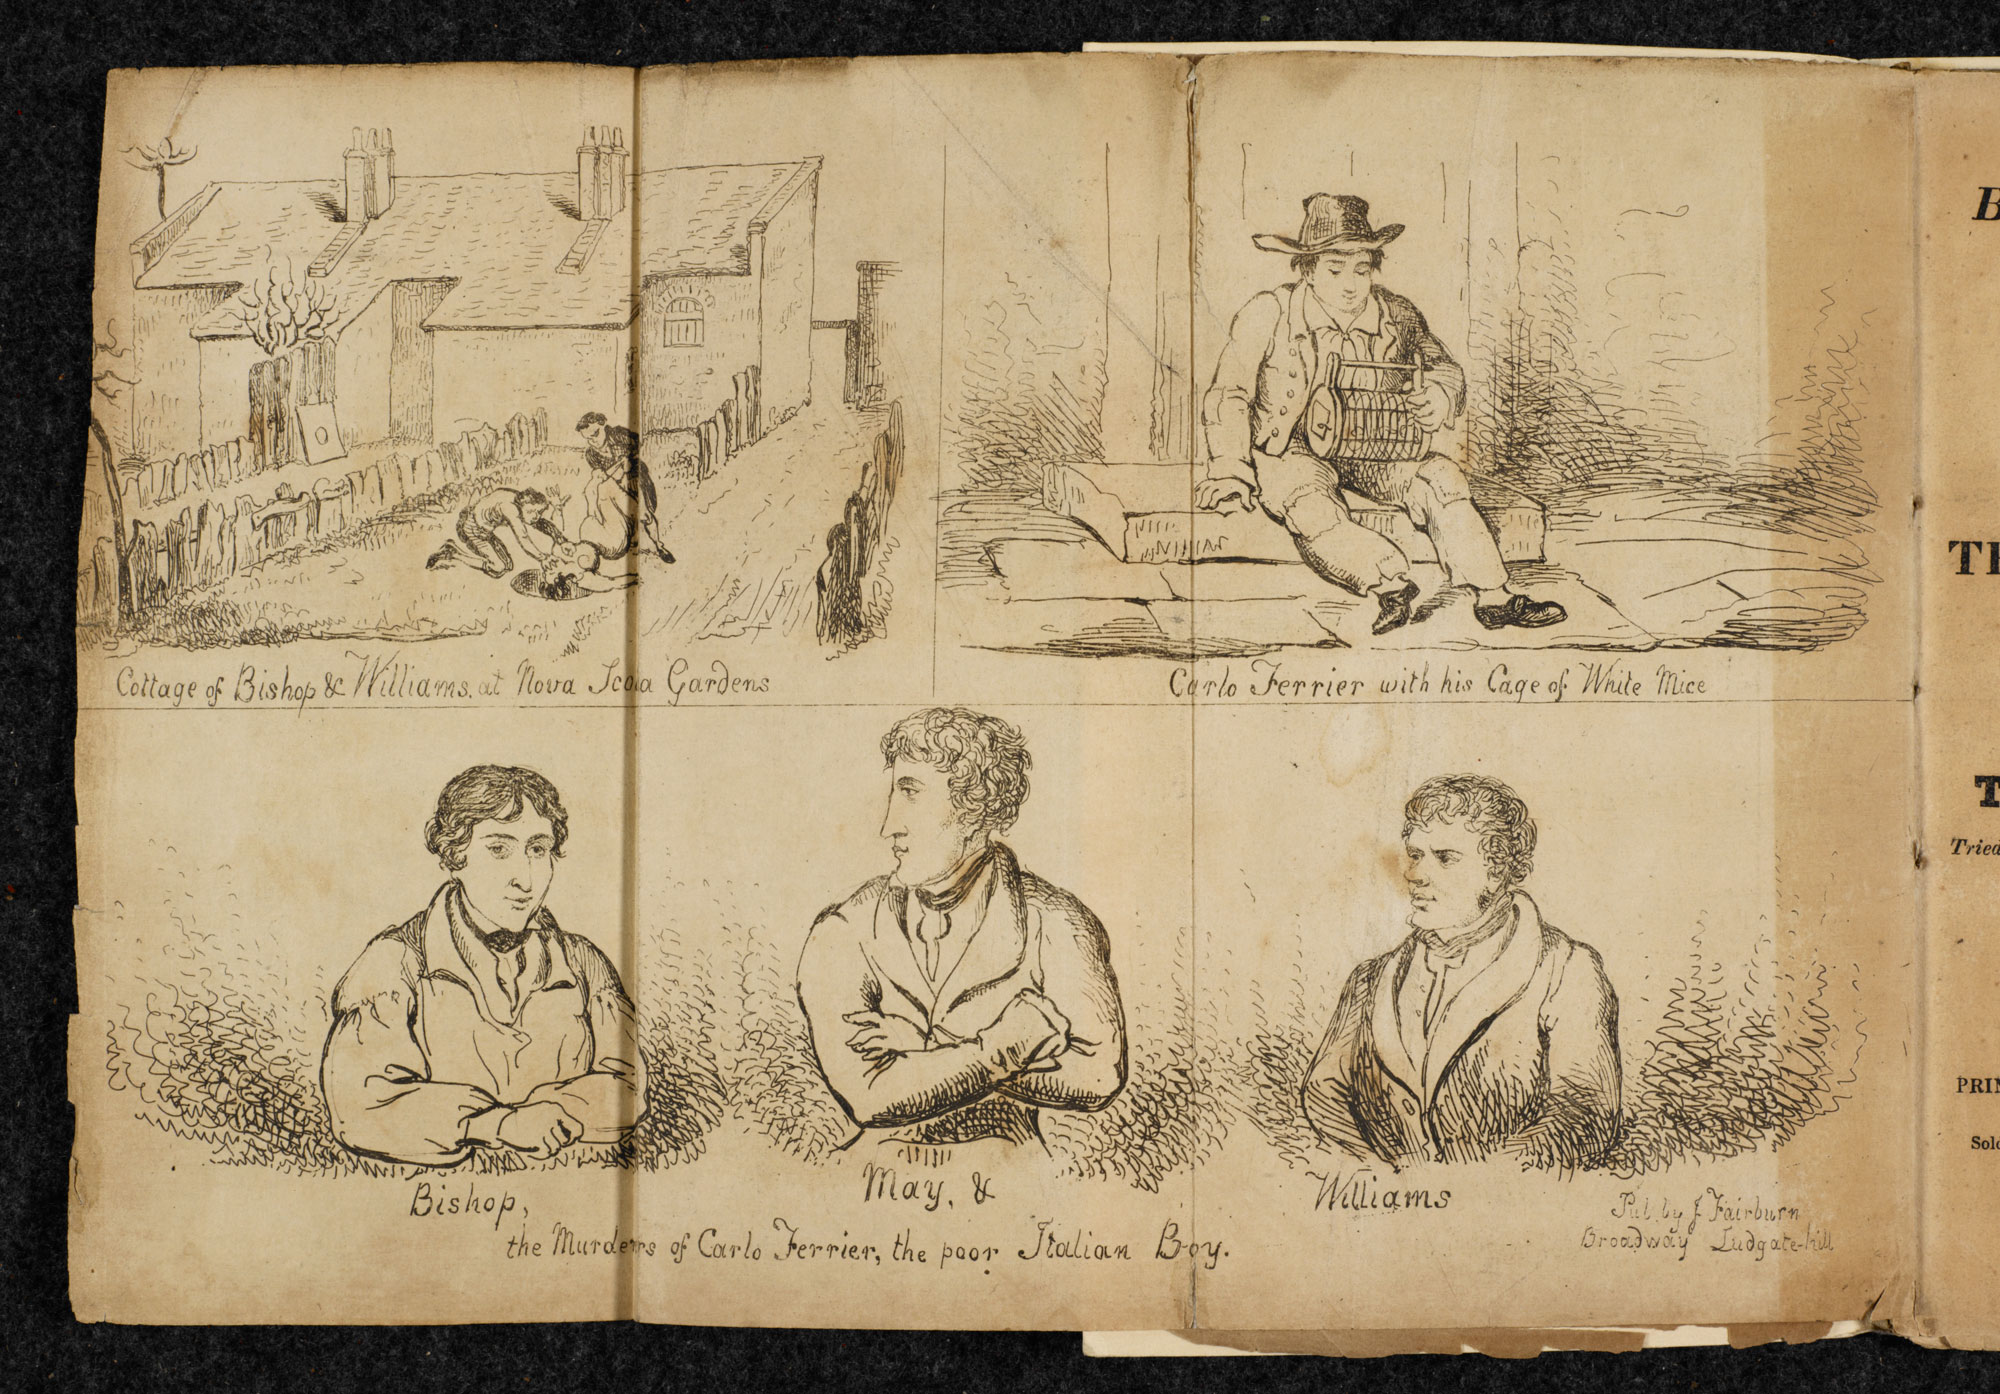 Cottage of Bishop & Williams. at Nova Scota Gardens
Carlo Ferrier with his Cage of White Mice
Bishop,
May, &
Williams
the Murderrs of Carlo Ferrier, the poor Italian Boy.
Pub. by J Fairburn
Broadway Ludgate-hill
B
TH
T
Tried
PRIN
Sold